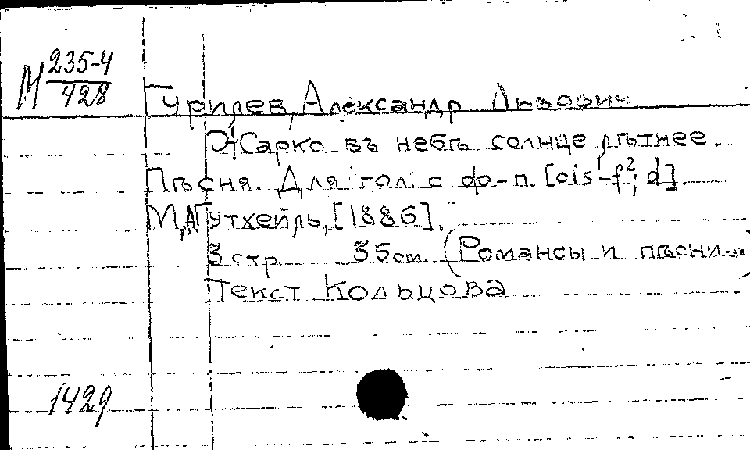 М 235-4
428
Гурилев, Александр Львович
Жарко въ небѣ солнце лѣтнее.
Пѣсня. Для гол. с ф-п. [cis¹-f²; d]
М., А. Гутхейль, [1886].
3 стр. 35 см. (Романсы и пѣсни...)
Текст Кольцова
1429